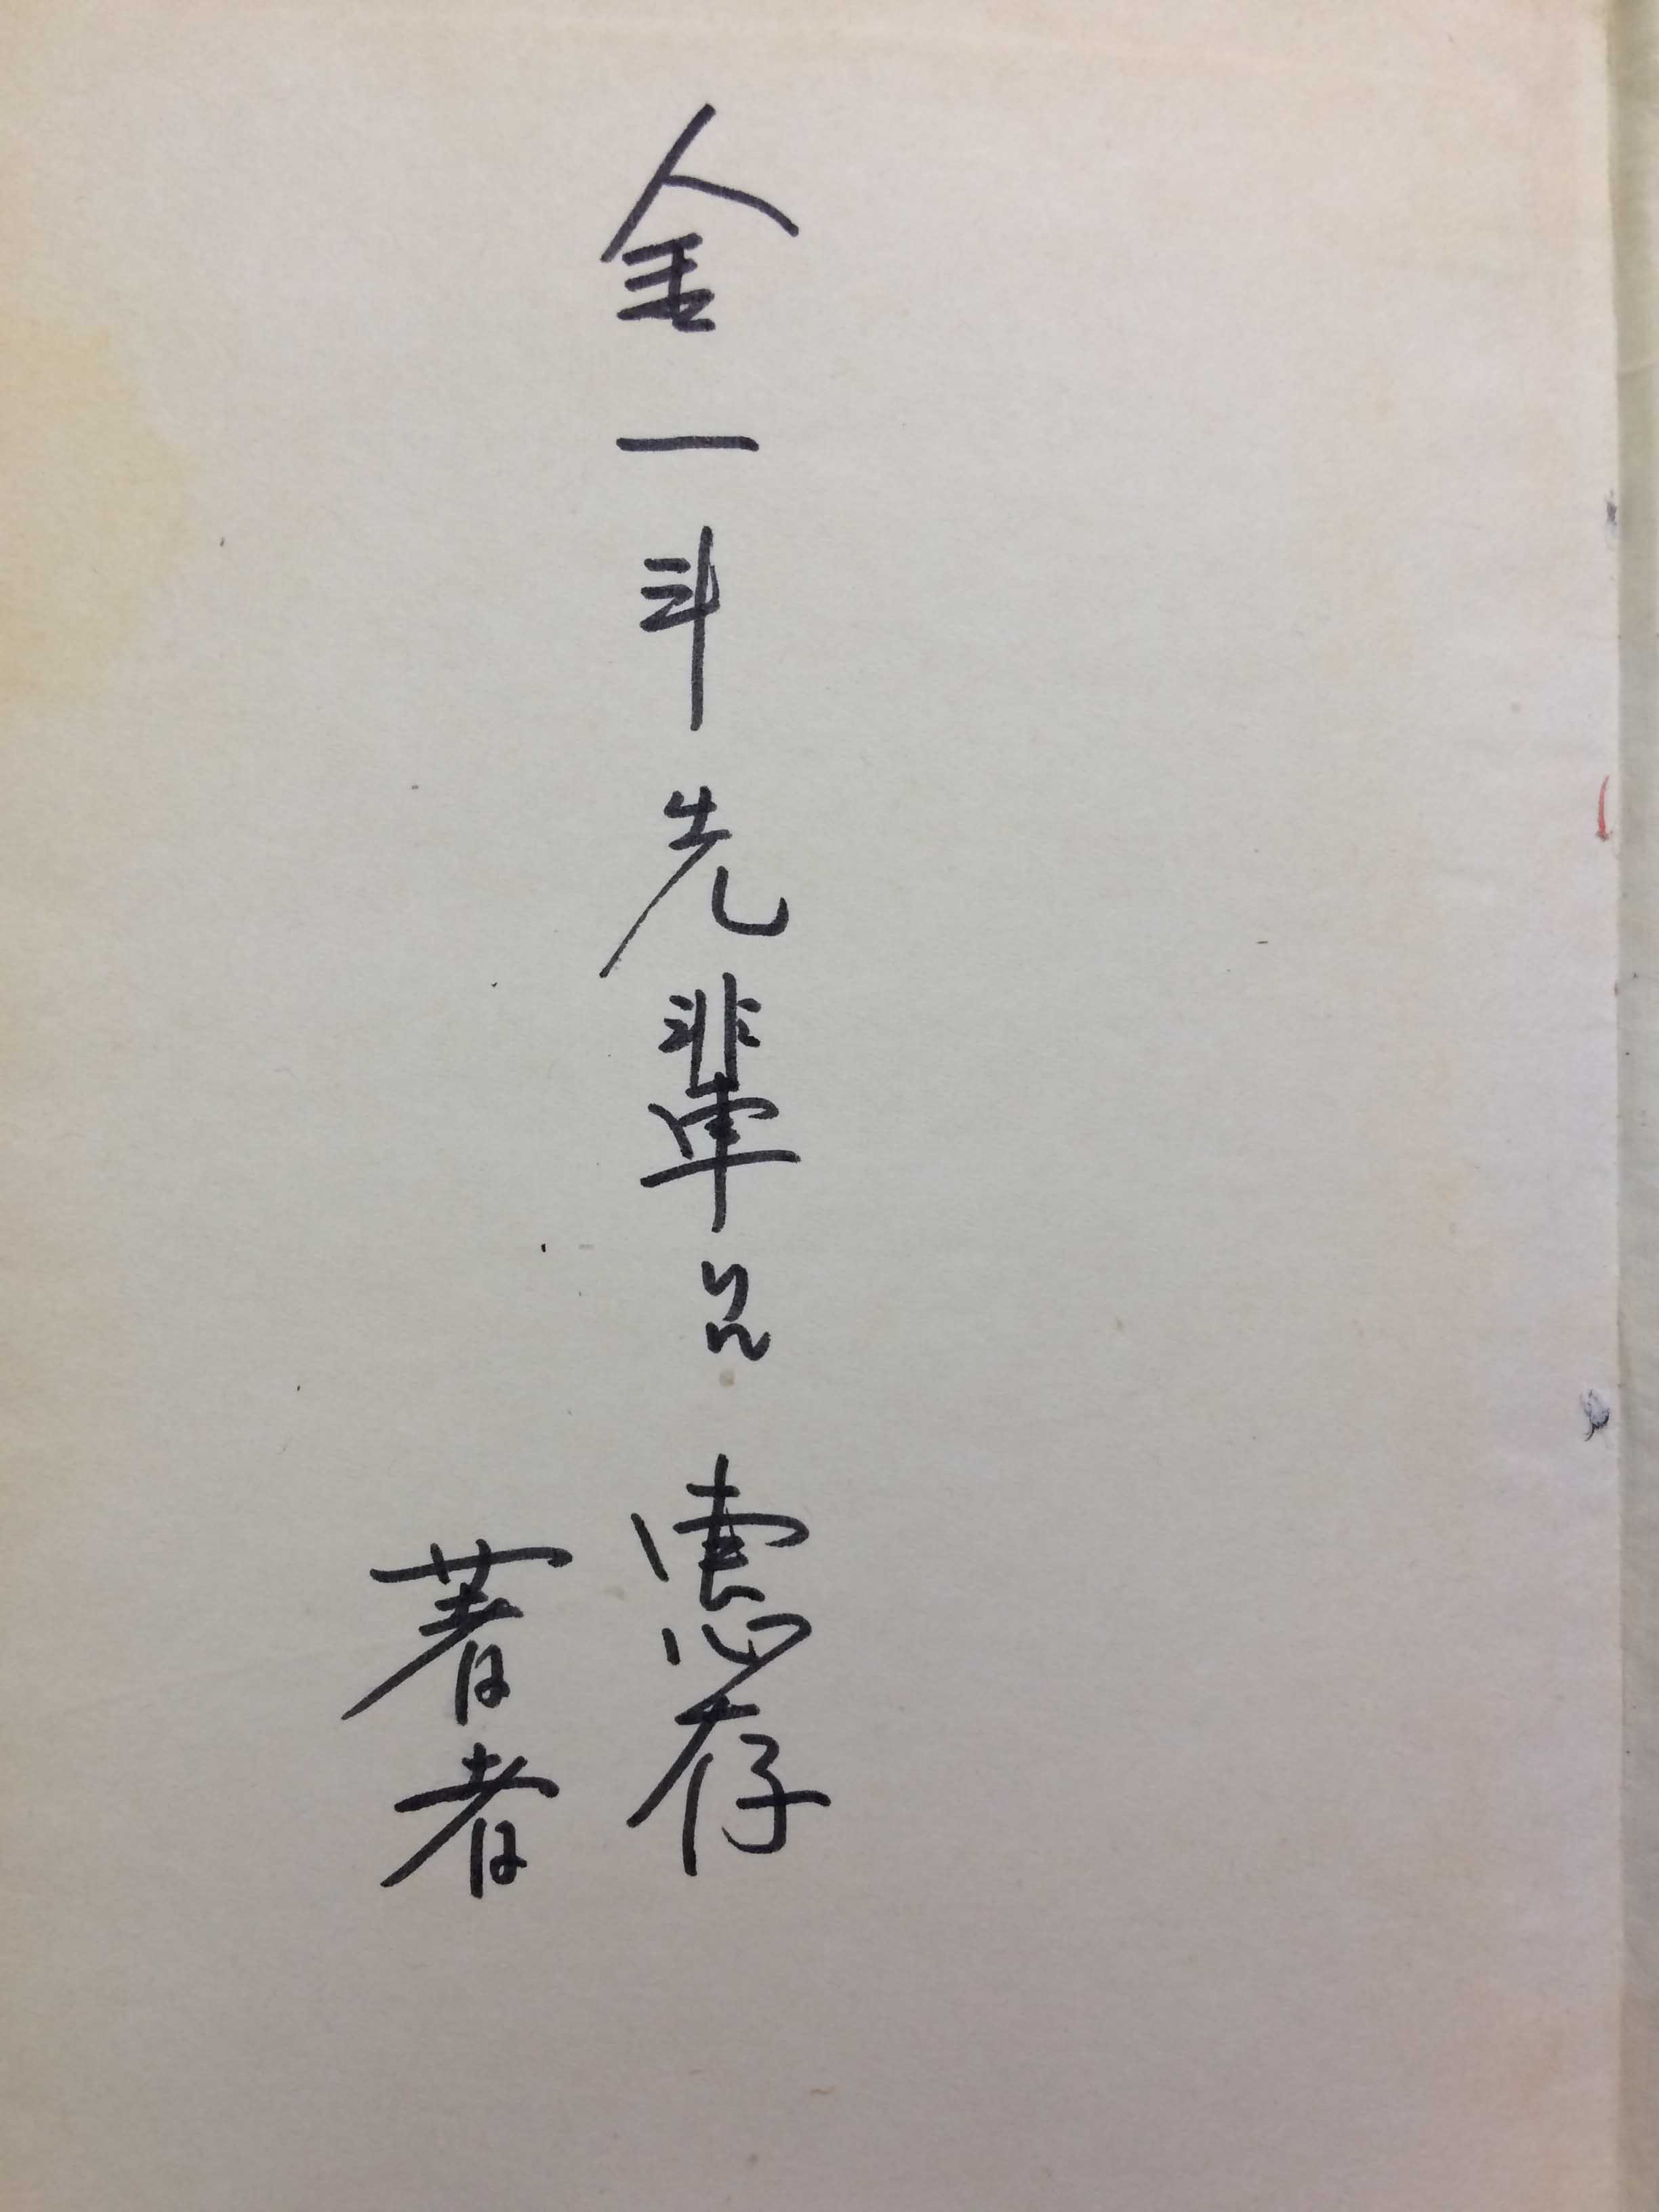 金一斗先輩兄 惠存
著者